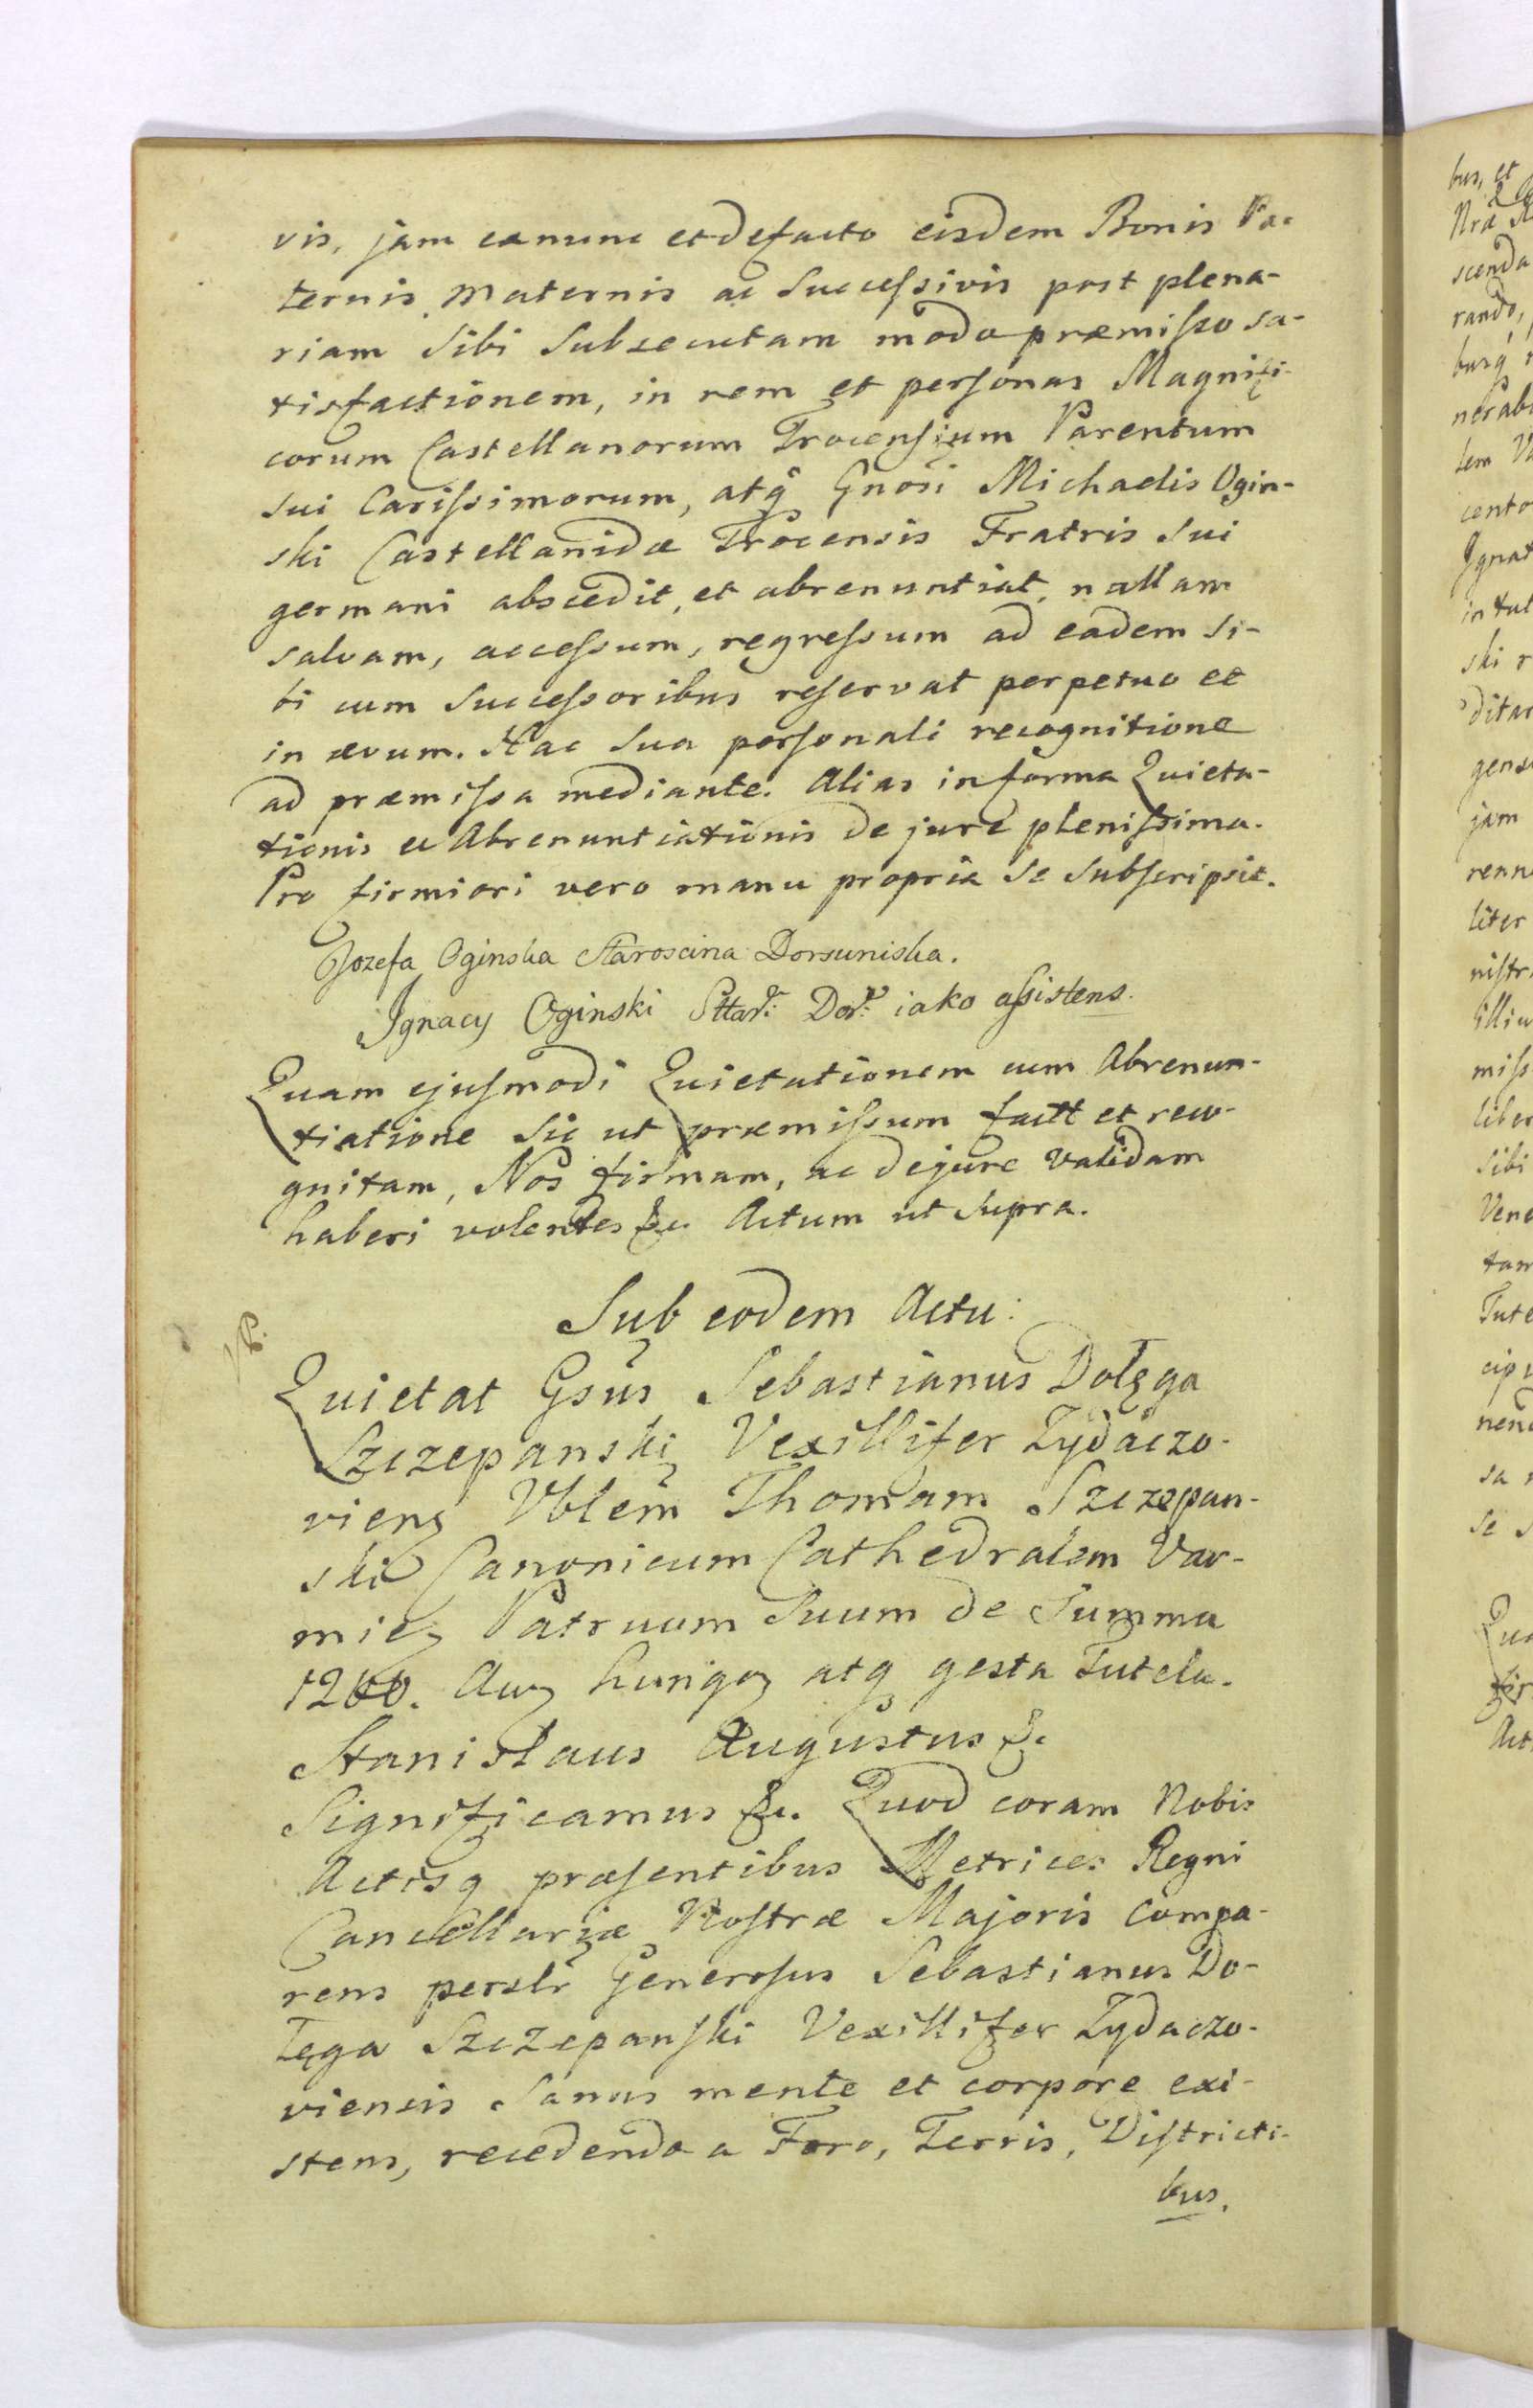 vis, jam exnunc et defacto eisdem Bonis Pa-
ternis Maternis ac Successivis post plena-
riam Sibi Subsecutam modo præmisso sa-
tisfactionem, in rem et personas Magnifi-
corum Castellanorum Trocensium Parentum
sui Carissimorum, atq Gnosi Michaelis Ogin-
ski Castellanidæ Trocensis Fratris Sui
germani abscedit, et abrenuntiat, nullam
salvam, accessum, regressum ad eadem si-
bi cum Successoribus reservat perpetuo et
in ævum. Hac Sua personali recognitione
ad præmissa mediante. Alias in forma Quieta-
tionis et Abrenuntiationis de jure plenissima.
Pro firmiori vero manu propria se subscripsit.
Jozefa Oginska Staroscina Dorsuniska.
Ignacy Oginski Sttar: Dor: iako assistens.
Quam ejusmodi Quietationem cum Abrenun-
tiatione Sic ut præmissum factt et reco-
gnitam, Nos firmam, ac dejure validam
haberi volentes &c. Actum ut supra.
Sub eodem Actu:
Quietat Gsus Sebastianus Dolęga
Szczepanski Vexillifer Zydaczo-
viens Vblem Thomam Szczepan-
ski Canonicum Cathedralem Var-
mien Patruum Suum de Summa
1200. Aur hungar atq gesta Tutela.
Stanislaus Augustus &c
Significamus &c. Quod coram Nobis
Actisq præsentibus Metrices Regni
Cancellariæ Nostræ Majoris Compa-
rens persslr Generosus Sebastianus Do-
łęga Szczepanski Vexillifer Zydaczo-
viensis Sanus mente et corpore exi-
stens, recedendo a Foro, Terris, Districti-
bus,